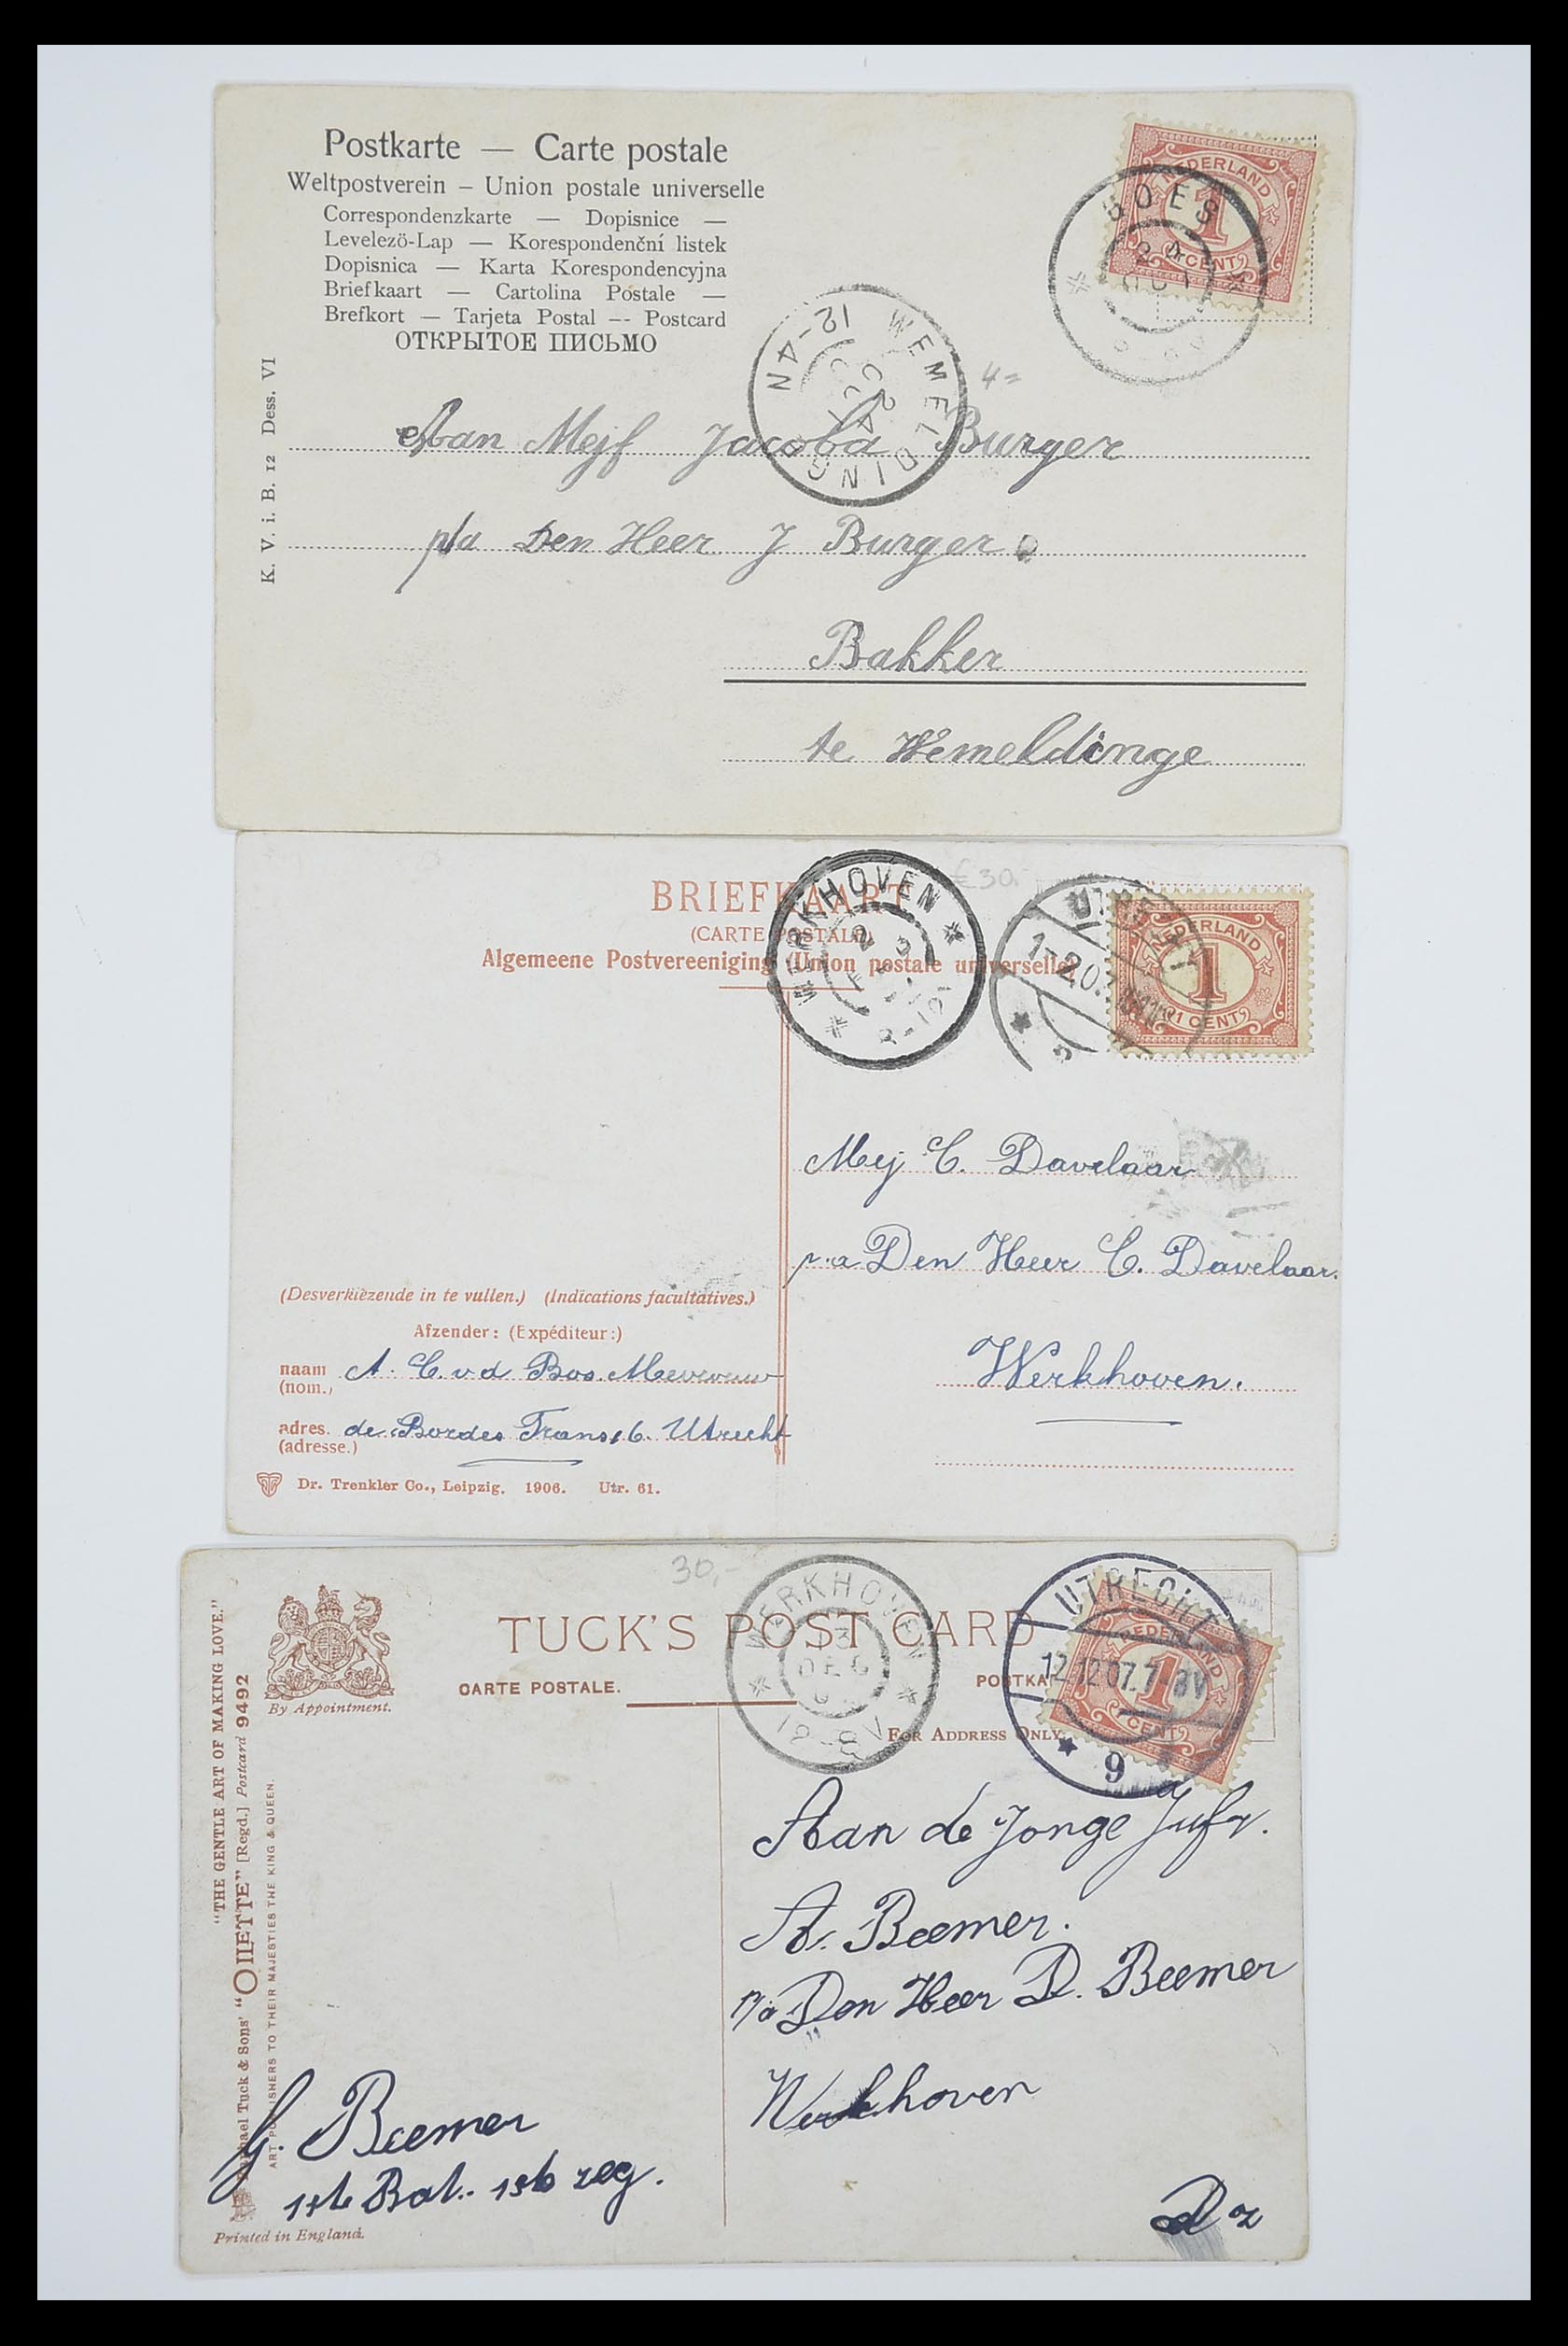 Postkarte — Carte postale
Weltpostverein – Union postale universelle
Correspondenzkarte — Dopisnice —
Levelezö-Lap — Korespondenční listek
Dopisnica — Karta Korespondencyjna
Briefkaart — Cartolina Postale —
Brefkort — Tarjeta Postal — Postcard
ОТКРЫТОЕ ПИСЬМО
K. V. i. B. 12 Dess. VI
NEDERLAND
1
CENT
GOES
24
OCT
WEMELDINGE
12-4N
24
OCT
4=
Aan Mejf Jacoba Burger
p/a Den Heer J Burger
Bakker
te Wemeldinge
BRIEFKAART
(CARTE POSTALE)
Algemeene Postvereeniging (Union postale universelle)
WERKHOVEN
8-12
£ 30.-
UTRECHT
1-2.07
NEDERLAND
1
1 CENT
Mej C. Davelaar
p.a Den Heer C. Davelaar.
Werkhoven.
(Desverkiezende in te vullen.) (Indications facultatives.)
Afzender: (Expéditeur:)
naam A. C. v. d Bos. Mevrouw
(nom.)
adres. de Bordes Trans 6. Utrecht
(adresse.)
Dr. Trenkler Co., Leipzig. 1906. Utr. 61.
30,-
TUCK'S POST CARD
CARTE POSTALE.
POSTKA
FOR ADDRESS ONLY
By Appointment.
WERKHOVEN
DEC
12-8V
UTRECHT
12.12.07.7-8V
9
NEDERLAND
1
CENT
"THE GENTLE ART OF MAKING LOVE."
Raphael Tuck & Sons' "OILETTE" [Regd.] Postcard 9492
ART PUBLISHERS TO THEIR MAJESTIES THE KING & QUEEN.
Aan de Jonge Jufr.
A. Beemer.
p/a Den Heer D. Beemer
Werkhoven
G. Beemer
1ste Bat. 1ste reg.
Dz
Printed in England.